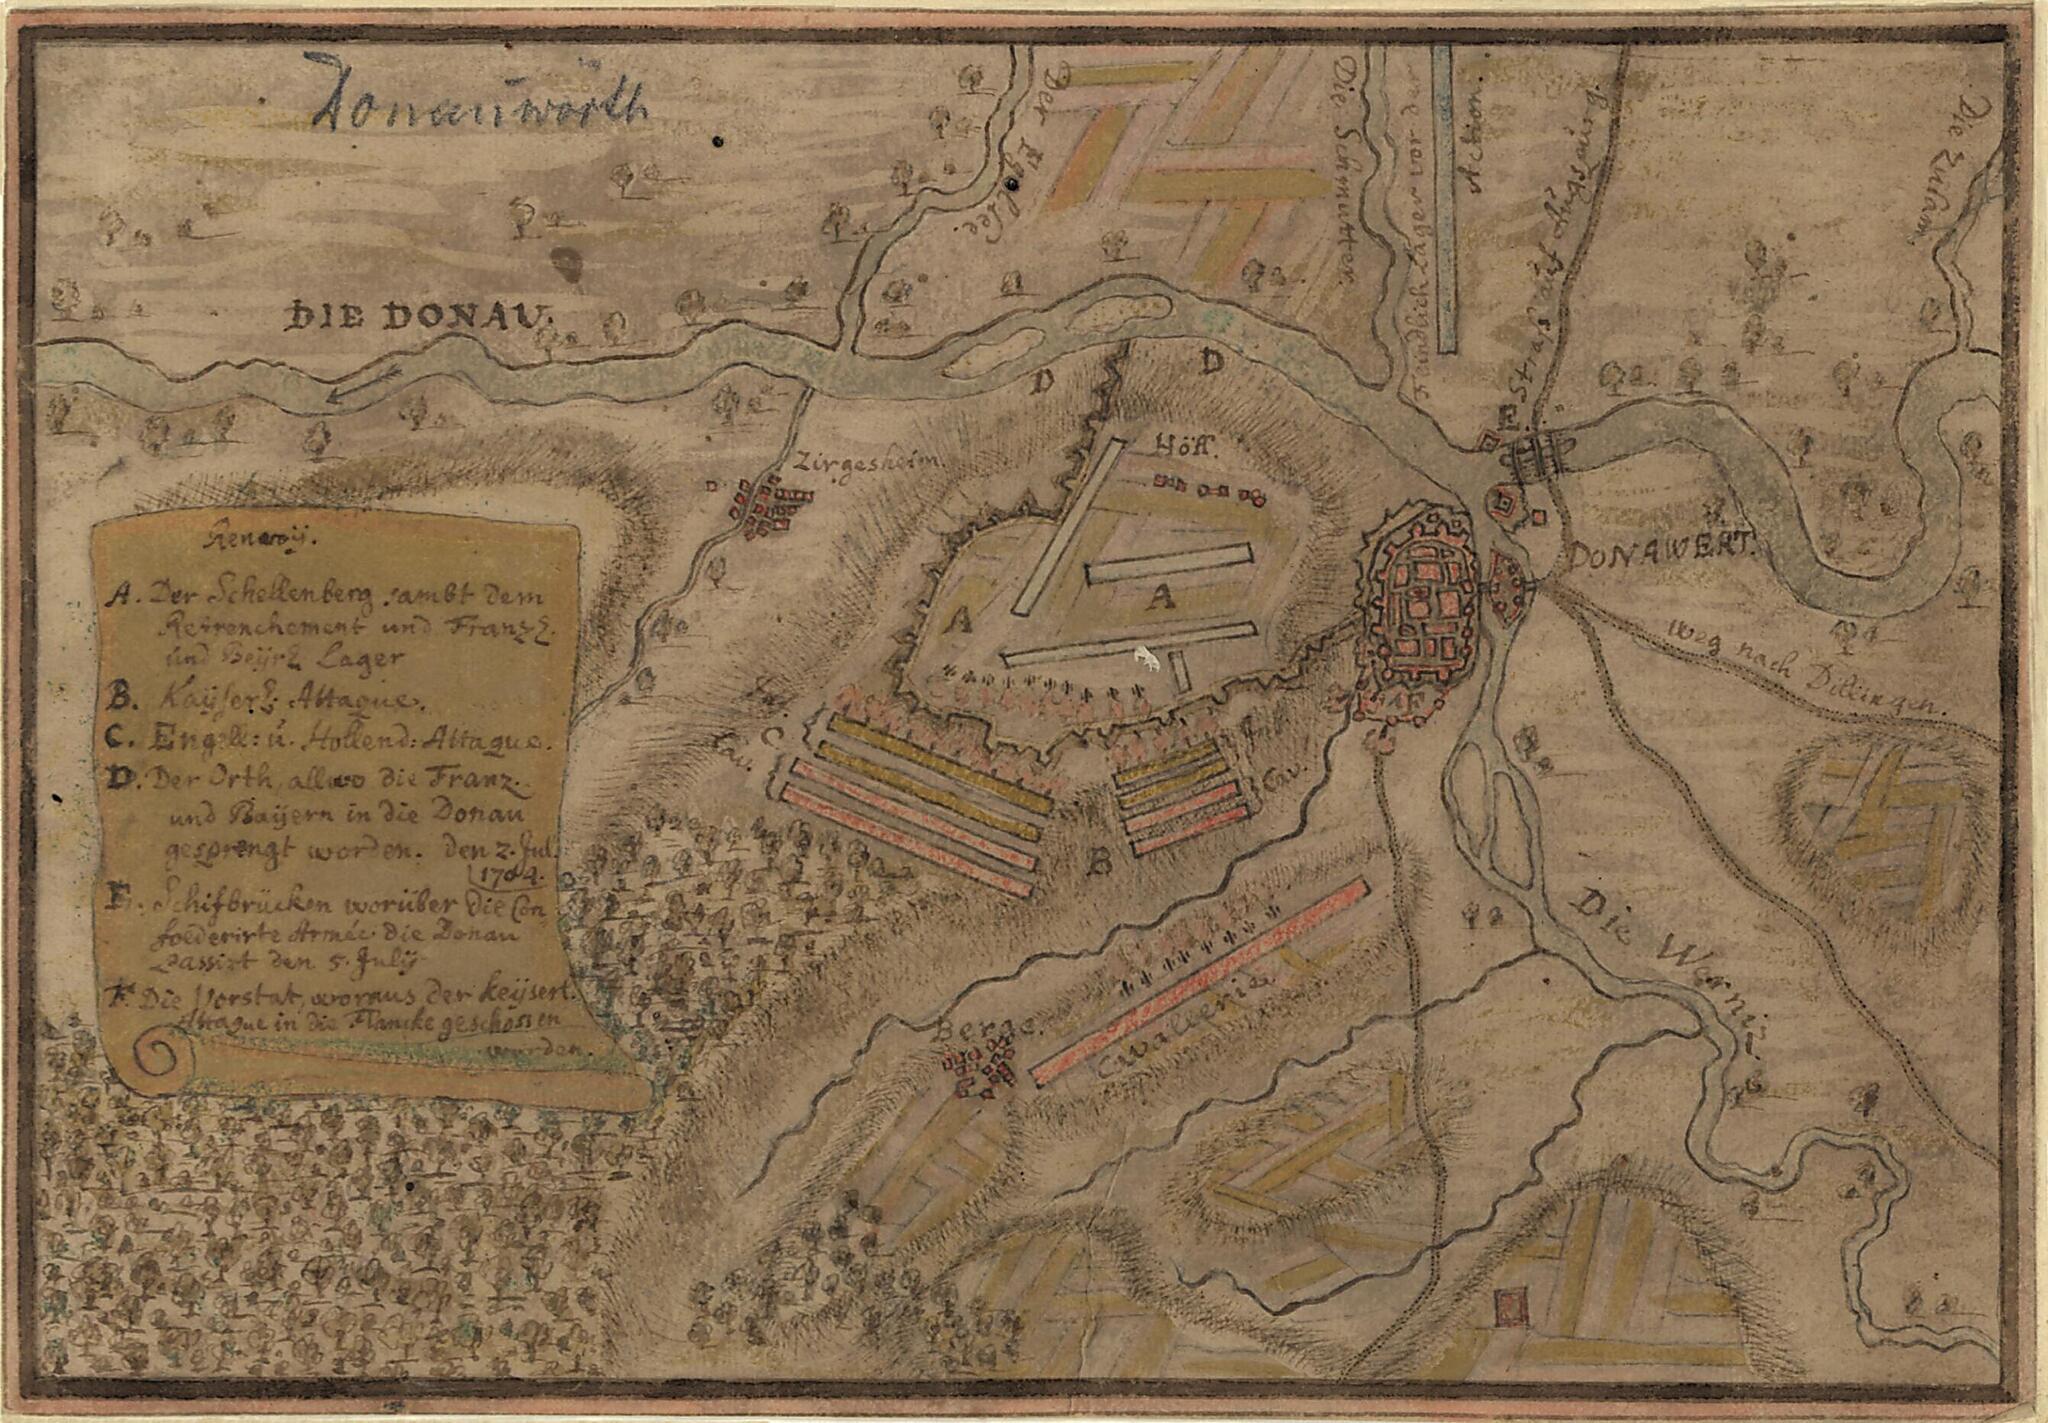 Donauwörth
DIE DONAU.
Der Egelsee.
Die Schmutter.
Feindlich Lager vor der
Action.
Straß auf Augspurg.
Die Zusam.
D
D
E
Höff.
Zirgesheim.
DONAWERT.
A
A
Weg nach Dillingen.
C.
Cav.
F
Cav.
B
Die Wernitz.
Berge.
Cavallerie
Renvoÿ.
A. Der Schellenberg sambt dem
Retrenchement und Franzl.
und Beÿrl Lager
B. Kaÿserl: Attaque.
C. Engell: u. Hollend: Attaque.
D. Der Orth, allwo die Franz.
und Baÿern in die Donau
gesprengt worden. den 2. Jul.
1704.
E. Schifbrücken worüber die Con
foederirte Armée die Donau
passirt den 5. Julÿ
F. Die Vorstat, woraus der keÿserl.
Attaque in die Flancke geschossen
worden.